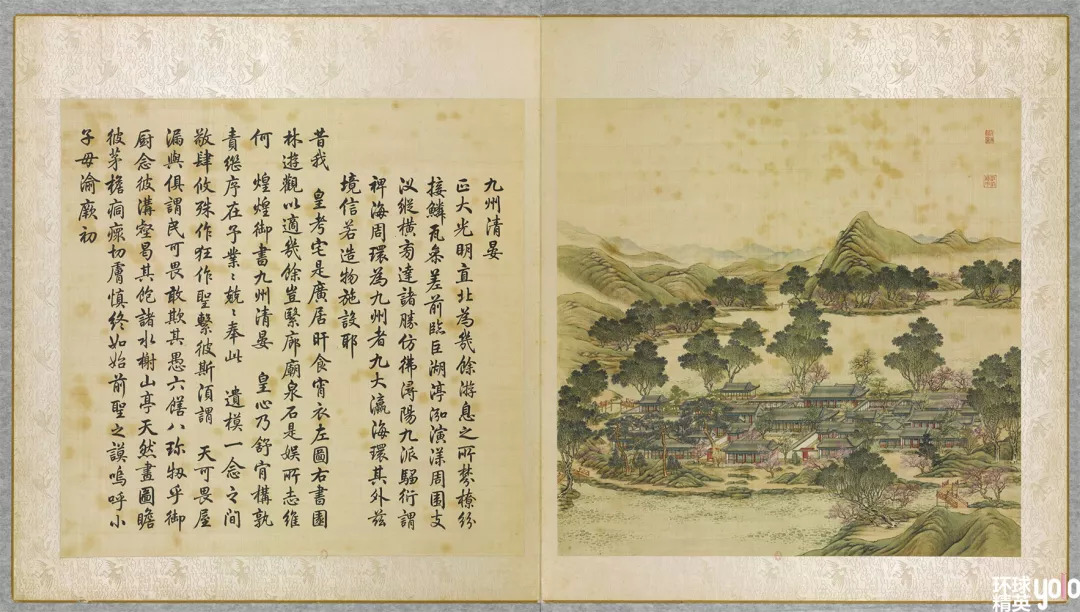 九州清晏
正大光明直北為幾餘游息之所棼橑紛
接鱗瓦參差前臨巨湖渟泓演漾周圍支
汊縱橫旁達諸勝仿彿潯陽九派騶衍謂
裨海周環為九州者九大瀛海環其外茲
境信若造物施設耶
昔我 皇考宅是廣居旰食宵衣左圖右書園
林遊觀以適幾餘豈繄廊廟泉石是娛所志維
何 煌煌御書九州清晏 皇心乃舒肯構孰
責繼序在予業〻兢〻奉此 遺模一念之間
敬肆攸殊作狂作聖繫彼斯須謂 天可畏屋
漏與俱謂民可畏敢欺其愚六膳八珍牣乎御
厨念彼溝壑曷其飽諸水榭山亭天然畫圖瞻
彼茅檐痌瘝切膚慎終如始前聖之謨嗚呼小
子毋渝厥初
环球
精英
yolo